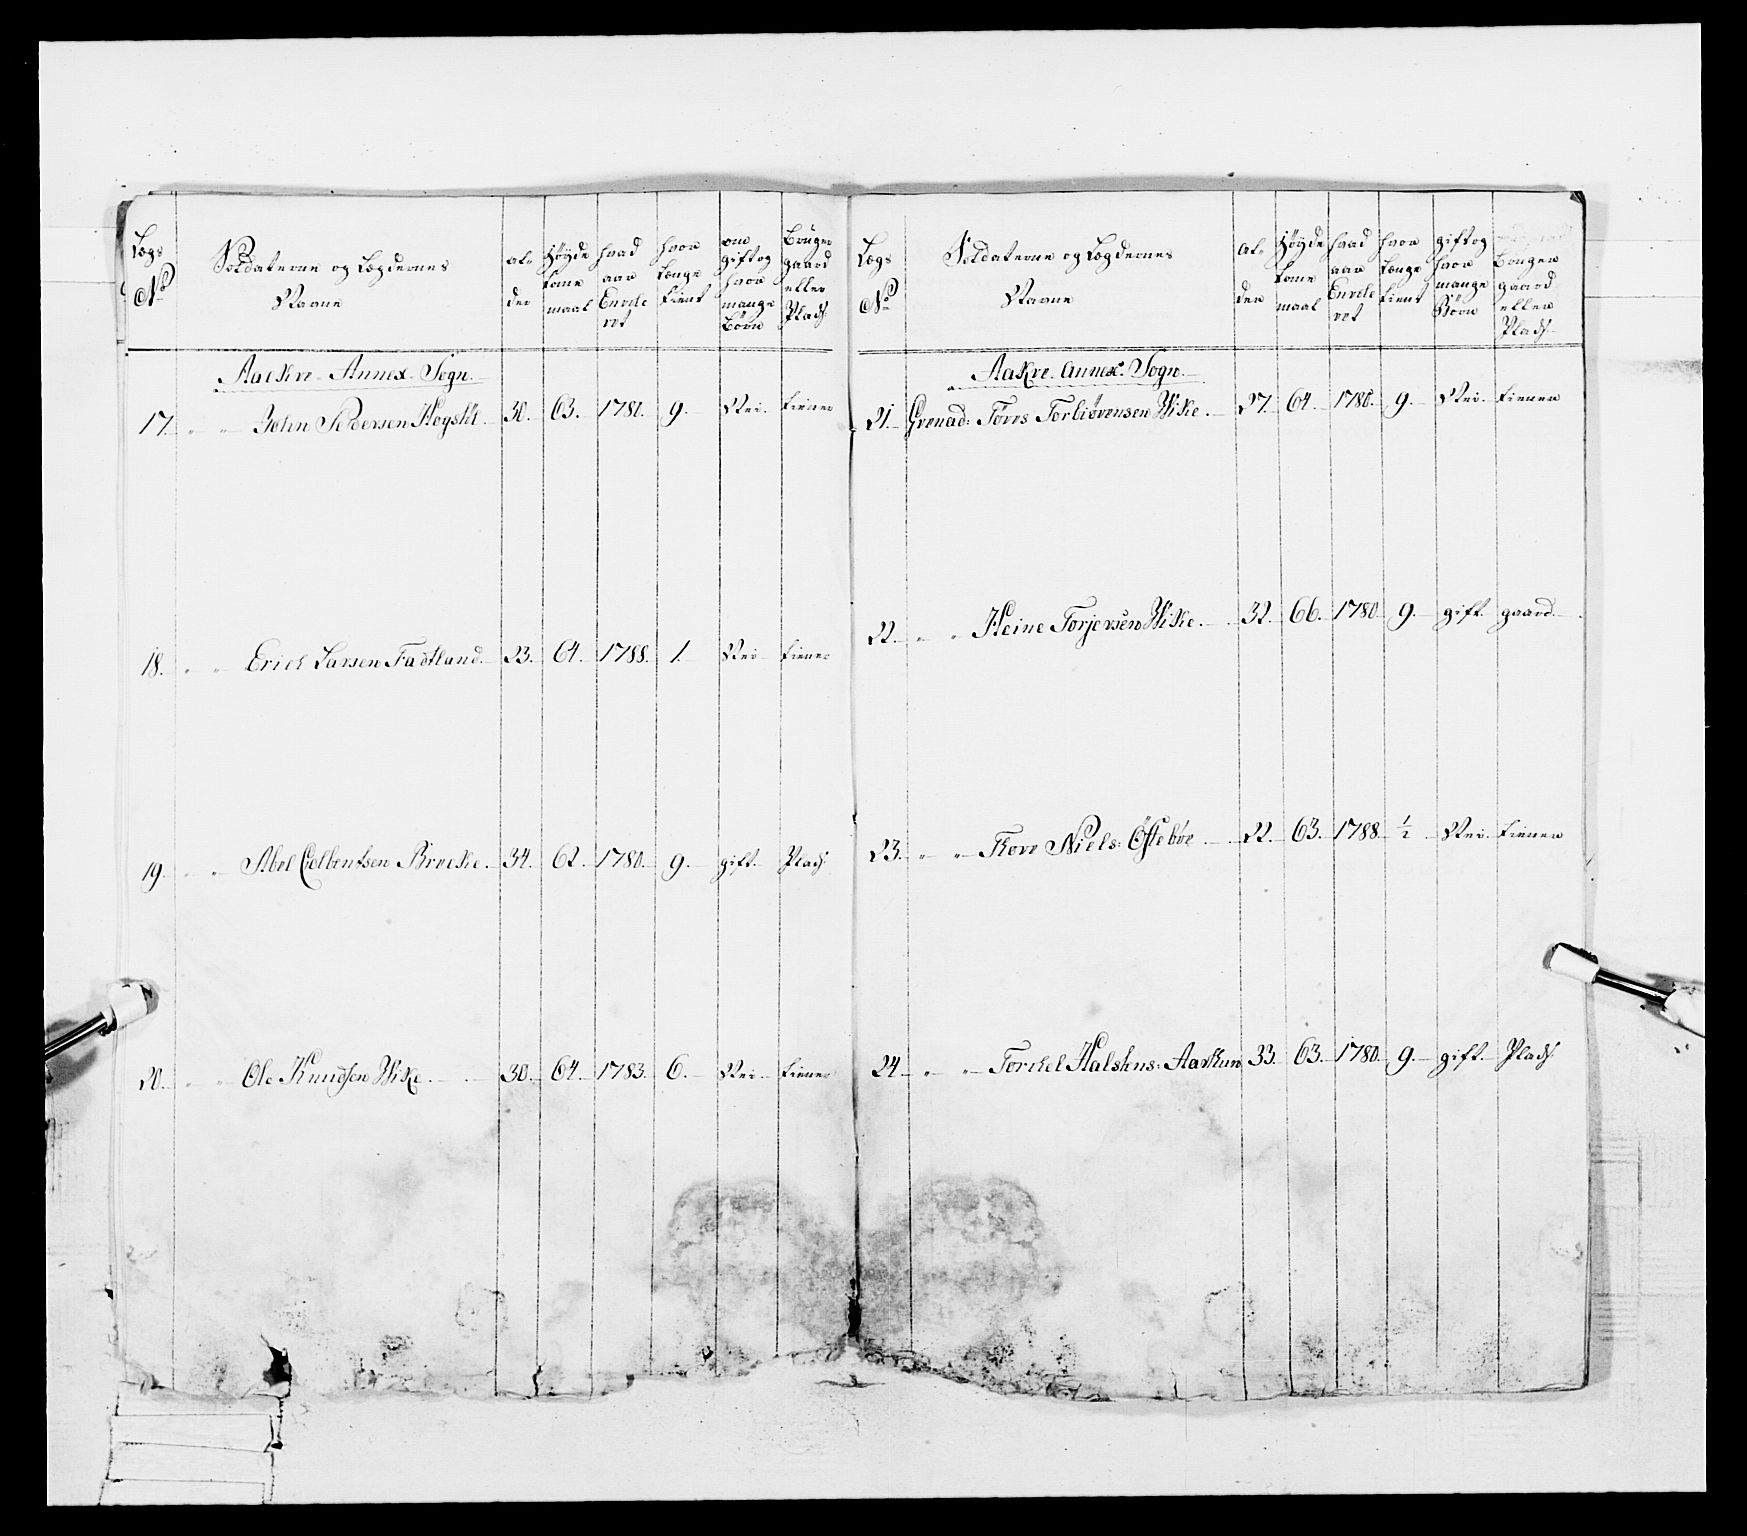 Lægs No
Soldaterne og Lægdernes Navne
al- der
Høyde tome maal
hvad aar Enrolle ret
hvor Længe tient
om gift og hvor mange Børn
Bruger gaard eller Plads
Aakre Annex Sogn.
17. " " John Pedersen 30. 63. 1780. 9. Nei. tiener
18. " " Erich Larsen Fadtland. 23. 64. 1788. 1. Nei tiener
19. " " Abel 34. 62. 1780. 9. gift. Plads
20. " " Ole Knudsen Wike. 30. 64. 1783. 6. Nei tiener
Lægs No
Soldaterne og Lægdernes Navne
al- der
Høyde tome maal
hvad aar Enrolle ret
hvor Længe tient
gift og hvor mange Børn
Bruger gaard eller Plads
Aakre Annex. Sogn.
21. Grenad: Tørres Torbiørensen Wike. 27. 64. 1780. 9. Nei. tiener
22. " " Heine Torjersen Wike. 32. 66. 1780. 9. gift. gaard
23. " " Tore Niels: Østebøe 22. 63. 1788. 1/2 Nei. tiener
24. " " Torchel 33. 63. 1780. 9. gift. Plads